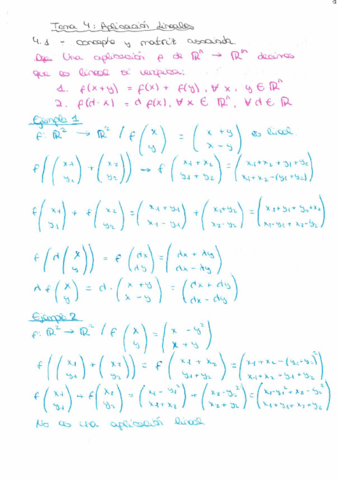 Tema 4: Aplicación lineales
4.1 - concepto y matriz asociada
Def Una aplicación f de ℝⁿ → ℝᵐ decimos
que es lineal si verifica:
1. f(x+y) = f(x) + f(y), ∀ x, y ∈ ℝⁿ
2. f(d·x) = d f(x), ∀ x ∈ ℝⁿ, ∀ d ∈ ℝ
Ejemplo 1
f: ℝ² → ℝ² / f (x y) = (x+y x-y) es lineal
f((x₁ y₁) + (x₂ y₂)) → f (x₁+x₂ y₁+y₂) = (x₁+x₂+y₁+y₂ x₁+x₂-(y₁+y₂))
f (x₁ y₁) + f (x₂ y₂) = (x₁+y₁ x₁-y₁) + (x₂+y₂ x₂-y₂) = (x₁+y₁+y₂+x₂ x₁-y₁+x₂-y₂)
f (d (x y)) = f (dx dy) = (dx+dy dx-dy)
d f (x y) = d · (x+y x-y) = (dx+dy dx-dy)
Ejemplo 2
f: ℝ² → ℝ² / f (x y) = (x-y² x+y)
f((x₁ y₁) + (x₂ y₂)) = f (x₁+x₂ y₁+y₂) = (x₁+x₂-(y₁+y₂)² x₁+x₂+y₁+y₂)
f (x₁ y₁) + f (x₂ y₂) = (x₁-y₁² x₁+y₁) + (x₂-y₂² x₂+y₂) = (x₁-y₁²+x₂-y₂² x₁+y₁+x₂+y₂)
No es una aplicación lineal